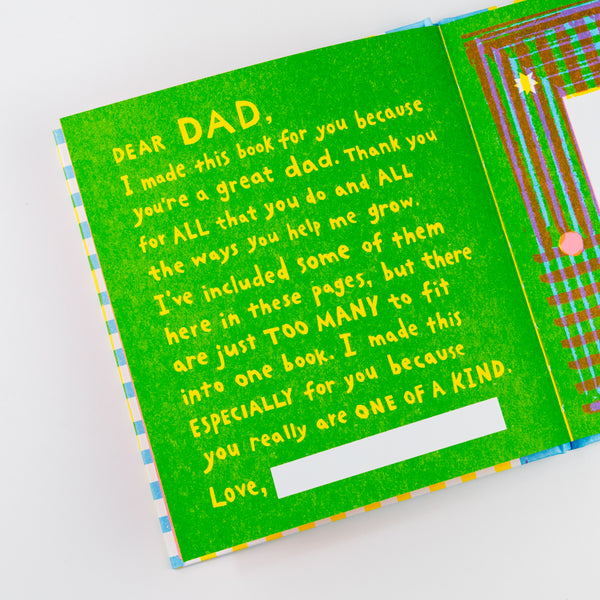 DEAR DAD,
I made this book for you because
you're a great dad. Thank you
for ALL that you do and ALL
the ways you help me grow.
I've included some of them
here in these pages, but there
are just TOO MANY to fit
into one book. I made this
ESPECIALLY for you because
you really are ONE OF A KIND.
Love,